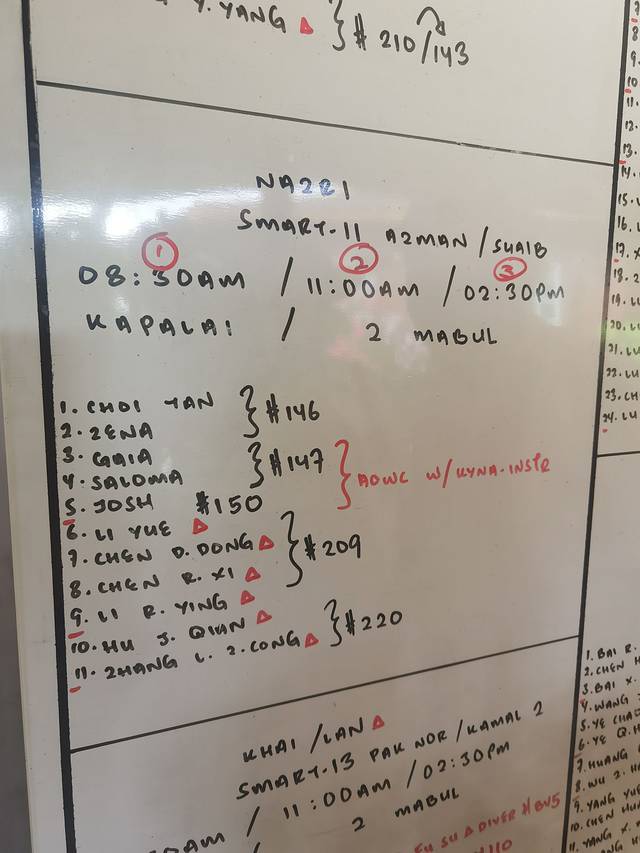 Y. YANG △ } # 210/143
NAZRI
SMART-11 AZMAN / SUAIB
1 2 3
08:30AM / 11:00AM / 02:30PM
KAPALAI / 2 MABUL
1. CHOI YAN } #146
2. ZENA
3. GAIA } #147
4. SALOMA
} AOWC W/ KYNA-INSTR
5. JOSH #150
6. LI YUE △
7. CHEN D. DONG △ } #209
8. CHEN R. XI △
9. LI R. YING △
10. HU J. QIAN △
11. ZHANG L. Z. CONG △ } #220
KHAI / LAN △
SMART-13 PAK NOR / KAMAL 2
AM / 11:00AM / 02:30PM
2 MABUL
SU △ DIVER # BUS
110
8.
9.
10.
11.
12.
13.
14.
15.
16.
17.
18. Z
19. LU
20. LU
21. LU
22. LU
23. CH
24. LU
1. BAI R.
2. CHEN H
3. BAI X.
4. WANG
5. YE CHA
6. YE Q. H
7. HUANG
8. WU Z. H
9. YANG YUE
10. CHEN HUA
11. YANG X.